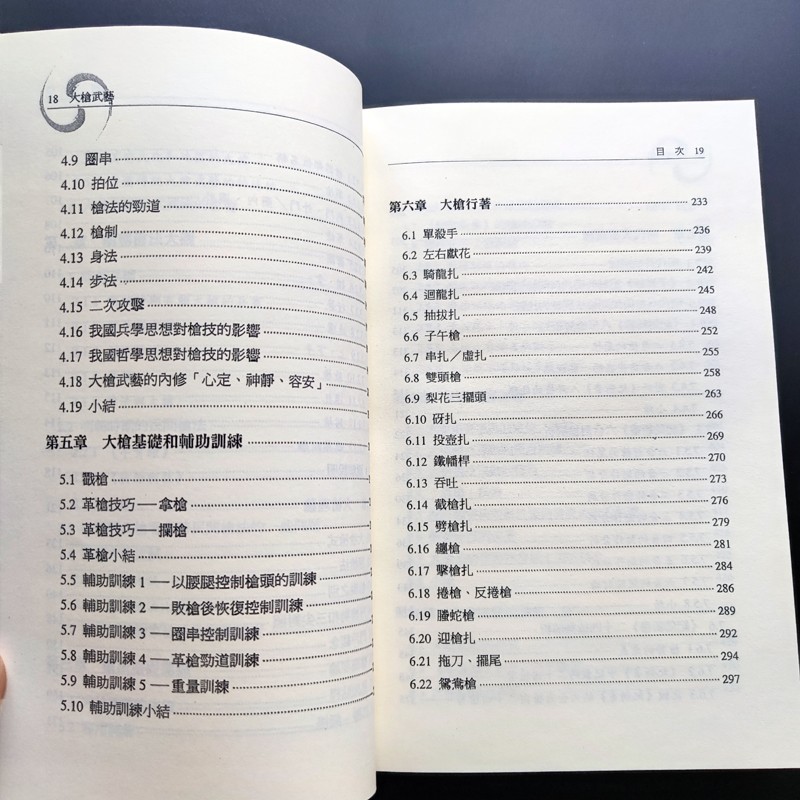 18 大槍武藝
4.9 圈串
4.10 拍位
4.11 槍法的勁道
4.12 槍制
4.13 身法
4.14 步法
4.15 二次攻擊
4.16 我國兵學思想對槍技的影響
4.17 我國哲學思想對槍技的影響
4.18 大槍武藝的內修「心定、神靜、容安」
4.19 小結
第五章 大槍基礎和輔助訓練
5.1 戳槍
5.2 革槍技巧──拿槍
5.3 革槍技巧──攔槍
5.4 革槍小結
5.5 輔助訓練1──以腰腿控制槍頭的訓練
5.6 輔助訓練2──敗槍後恢復控制訓練
5.7 輔助訓練3──圈串控制訓練
5.8 輔助訓練4──革槍勁道訓練
5.9 輔助訓練5──重量訓練
5.10 輔助訓練小結
目次 19
第六章 大槍行著 233
6.1 單殺手 236
6.2 左右獻花 239
6.3 騎龍扎 242
6.4 迴龍扎 245
6.5 抽拔扎 248
6.6 子午槍 252
6.7 串扎／虛扎 255
6.8 雙頭槍 258
6.9 梨花三擺頭 263
6.10 砑扎 266
6.11 投壺扎 269
6.12 鐵幡桿 270
6.13 吞吐 273
6.14 截槍扎 276
6.15 劈槍扎 279
6.16 纏槍 281
6.17 擊槍扎 284
6.18 捲槍、反捲槍 286
6.19 騰蛇槍 289
6.20 迎槍扎 292
6.21 拖刀、擺尾 294
6.22 鴛鴦槍 297